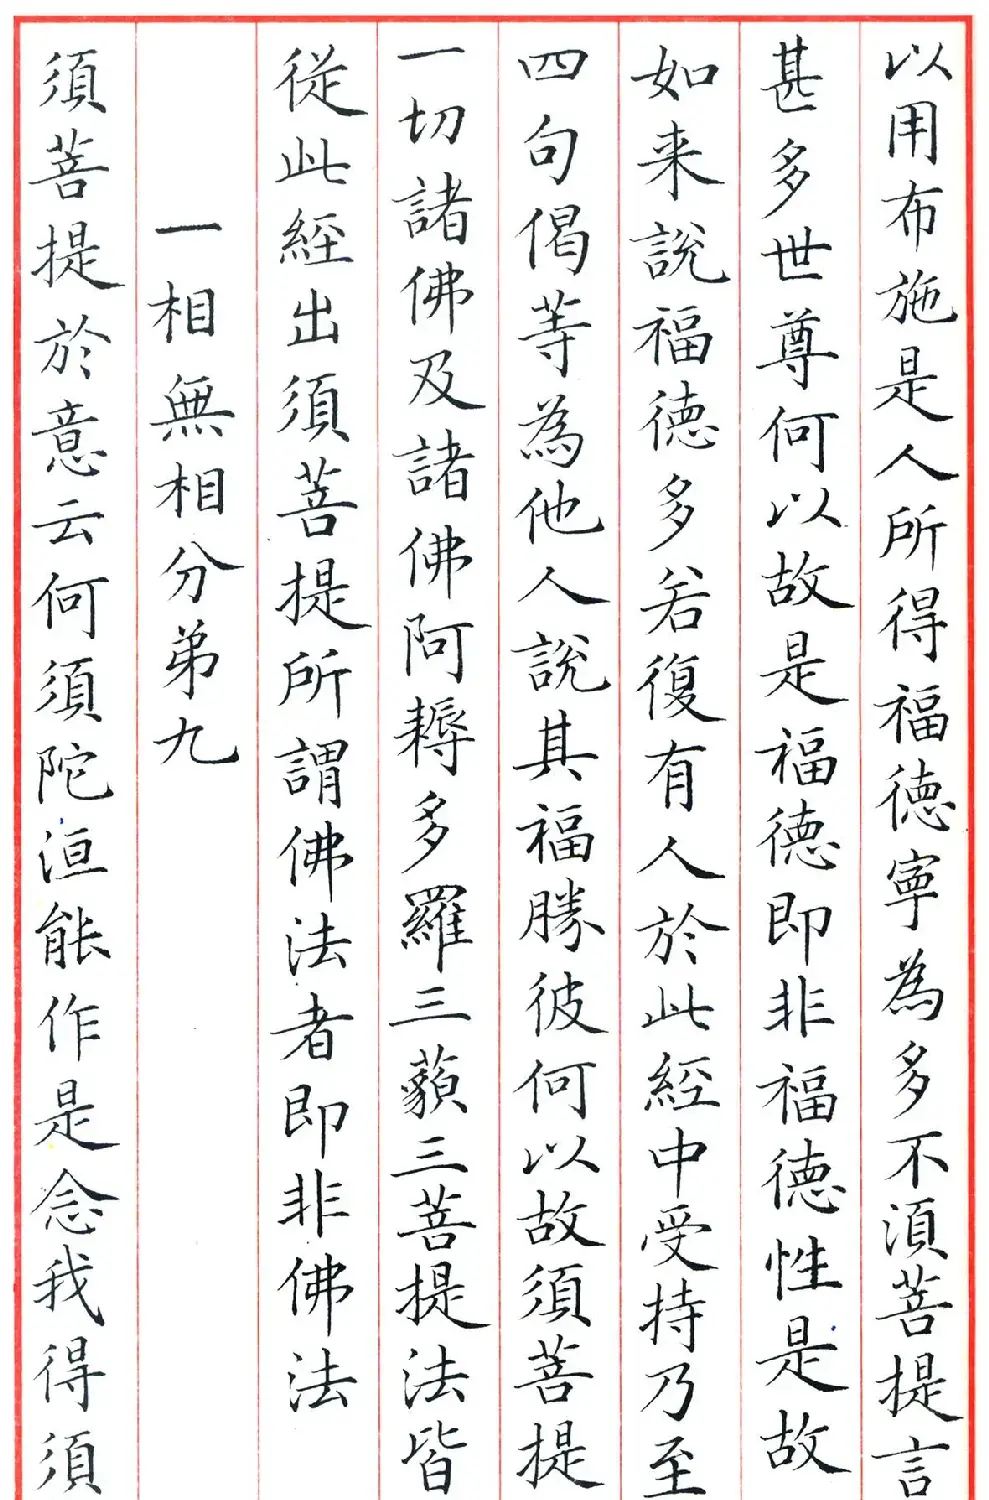 以用布施是人所得福德寧為多不須菩提言
甚多世尊何以故是福德即非福德性是故
如来說福德多若復有人於此經中受持乃至
四句偈等為他人說其福勝彼何以故須菩提
一切諸佛及諸佛阿耨多羅三藐三菩提法皆
從此經出須菩提所謂佛法者即非佛法
一相無相分弟九
須菩提於意云何須陀洹能作是念我得須